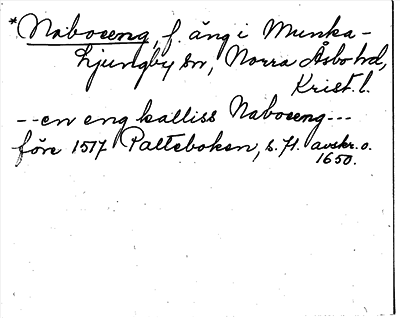 *Naboseng, f. äng i Munka-
Ljungby sn, Norra Åsbo hd,
Krist. l.
--en eng kalliss Naboseng---
före 1517 Palteboken, s. 71. avskr. o.
1650.